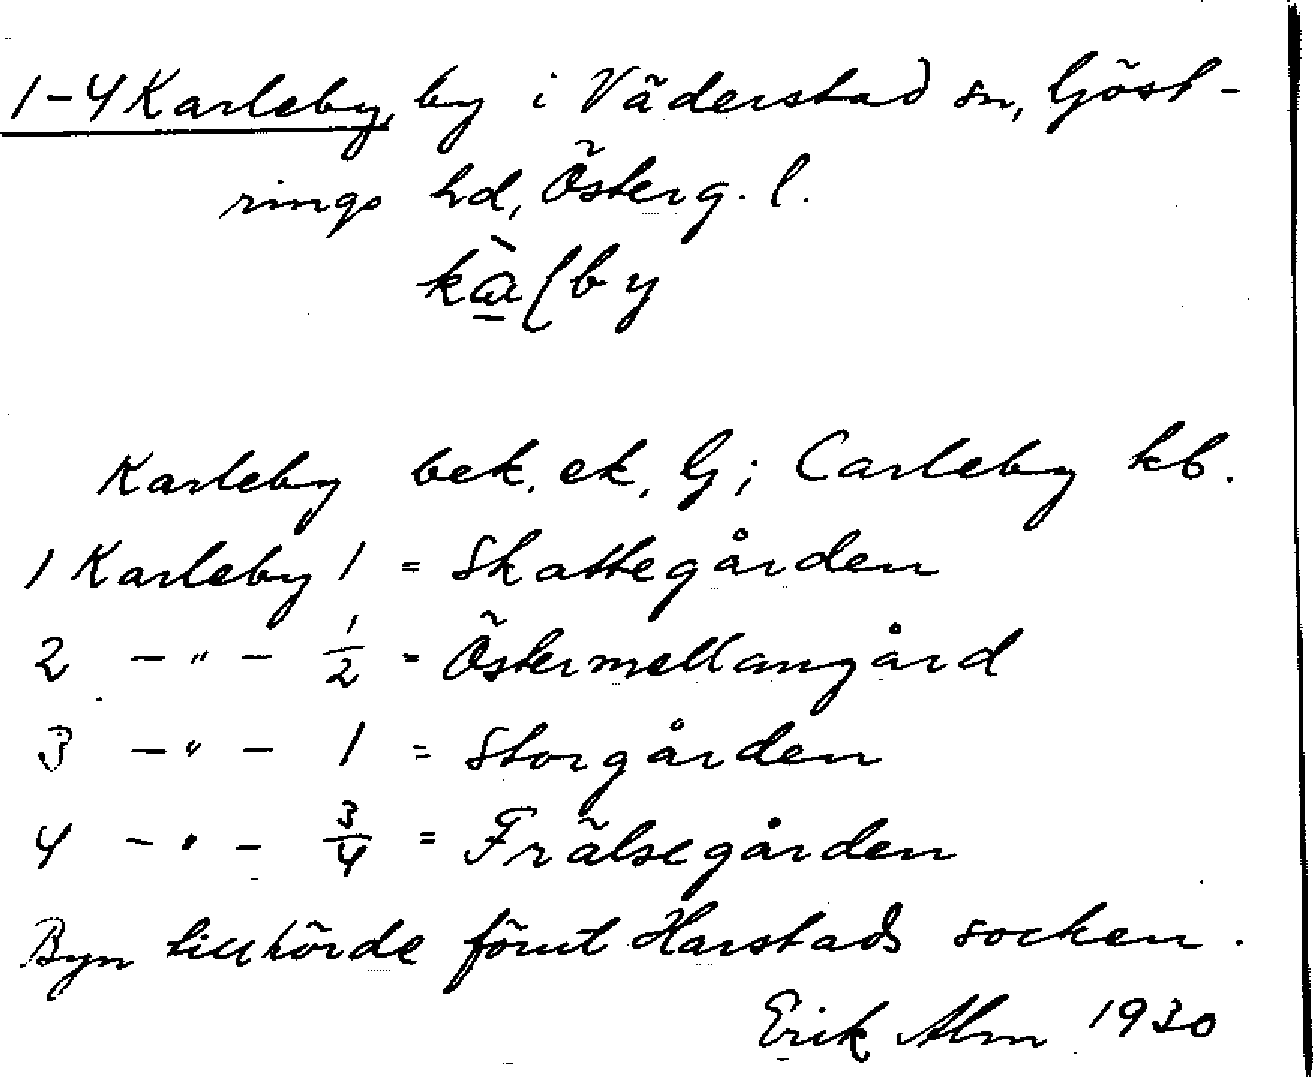 1-4 Karleby, by i Väderstad sn, Göst-
rings hd, Österg. l.
kàlby
Karleby bek. ek, G; Carleby kb.
1 Karleby 1 = Skattegården
2 -"- 1/2 = Östermellangård
3 -"- 1 = Storgården
4 -"- 3/4 = Frälsegården
Byn tillhörde förut Harstads socken.
Erik Alm 1930